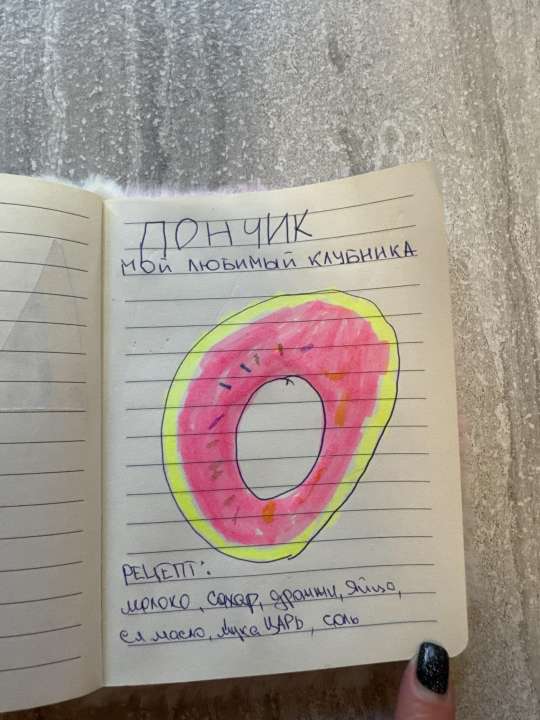 ПОНЧИК
МОЙ ЛЮБИМЫЙ КЛУБНИКА
РЕЦЕПТ:
молоко, сахар, дрожжи, яйцо,
сл масло, мука ЦАРЬ, соль